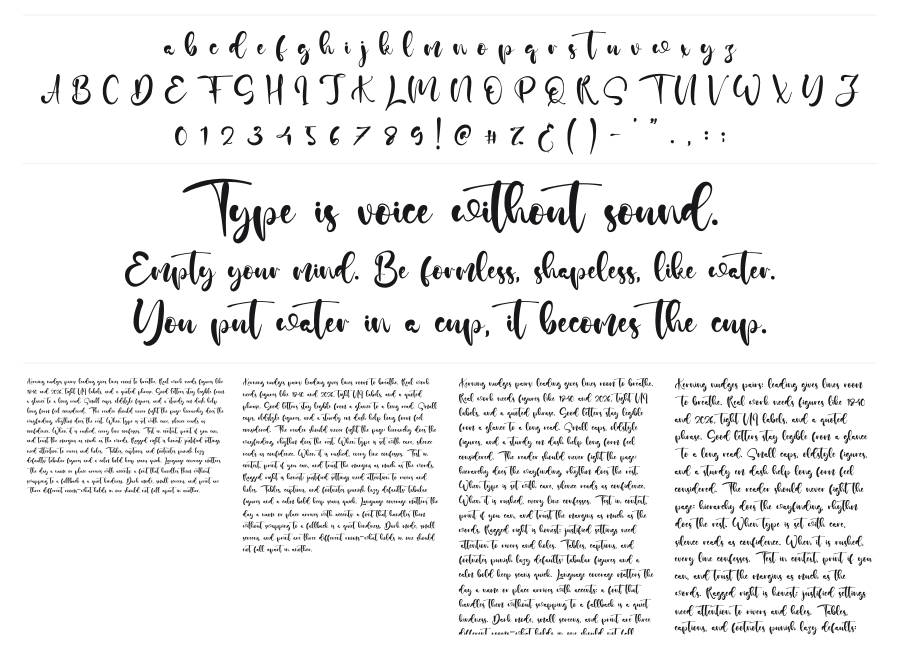 a b c d e f g h i j k l m n o p q r s t u v w x y z
A B C D E F G H I J K L M N O P Q R S T U V W X Y Z
0 1 2 3 4 5 6 7 8 9 ! @ # % & ( ) - ' " . , : ;
Type is voice without sound.
Empty your mind. Be formless, shapeless, like water.
You put water in a cup, it becomes the cup.
Kerning nudges pairs; leading gives lines room to breathe. Real work needs figures like
1840 and 2026, tight UI labels, and a quoted phrase. Good letters stay legible from
a glance to a long read. Small caps, oldstyle figures, and a sturdy en dash help
long form feel considered. The reader should never fight the page: hierarchy does the
wayfinding, rhythm does the rest. When type is set with care, silence reads as
confidence. When it is rushed, every line confesses. Test in context, print if you can,
and trust the margins as much as the words. Ragged right is honest; justified settings
need attention to rivers and holes. Tables, captions, and footnotes punish lazy
defaults: tabular figures and a calm bold keep scans quick. Language coverage matters
the day a name or place arrives with accents: a font that handles them without
swapping to a fallback is a quiet kindness. Dark mode, small screens, and print are
three different rooms—what holds in one should not fall apart in another.
Kerning nudges pairs; leading gives lines room to breathe. Real work
needs figures like 1840 and 2026, tight UI labels, and a quoted
phrase. Good letters stay legible from a glance to a long read. Small
caps, oldstyle figures, and a sturdy en dash help long form feel
considered. The reader should never fight the page: hierarchy does the
wayfinding, rhythm does the rest. When type is set with care, silence
reads as confidence. When it is rushed, every line confesses. Test in
context, print if you can, and trust the margins as much as the words.
Ragged right is honest; justified settings need attention to rivers and
holes. Tables, captions, and footnotes punish lazy defaults: tabular
figures and a calm bold keep scans quick. Language coverage matters the
day a name or place arrives with accents: a font that handles them
without swapping to a fallback is a quiet kindness. Dark mode, small
screens, and print are three different rooms—what holds in one should
not fall apart in another.
Kerning nudges pairs; leading gives lines room to breathe.
Real work needs figures like 1840 and 2026, tight UI
labels, and a quoted phrase. Good letters stay legible
from a glance to a long read. Small caps, oldstyle
figures, and a sturdy en dash help long form feel
considered. The reader should never fight the page:
hierarchy does the wayfinding, rhythm does the rest.
When type is set with care, silence reads as confidence.
When it is rushed, every line confesses. Test in context,
print if you can, and trust the margins as much as the
words. Ragged right is honest; justified settings need
attention to rivers and holes. Tables, captions, and
footnotes punish lazy defaults: tabular figures and a
calm bold keep scans quick. Language coverage matters the
day a name or place arrives with accents: a font that
handles them without swapping to a fallback is a quiet
kindness. Dark mode, small screens, and print are three
different rooms—what holds in one should not fall
Kerning nudges pairs; leading gives lines room
to breathe. Real work needs figures like 1840
and 2026, tight UI labels, and a quoted
phrase. Good letters stay legible from a glance
to a long read. Small caps, oldstyle figures,
and a sturdy en dash help long form feel
considered. The reader should never fight the
page: hierarchy does the wayfinding, rhythm
does the rest. When type is set with care,
silence reads as confidence. When it is rushed,
every line confesses. Test in context, print if you
can, and trust the margins as much as the
words. Ragged right is honest; justified settings
need attention to rivers and holes. Tables,
captions, and footnotes punish lazy defaults: